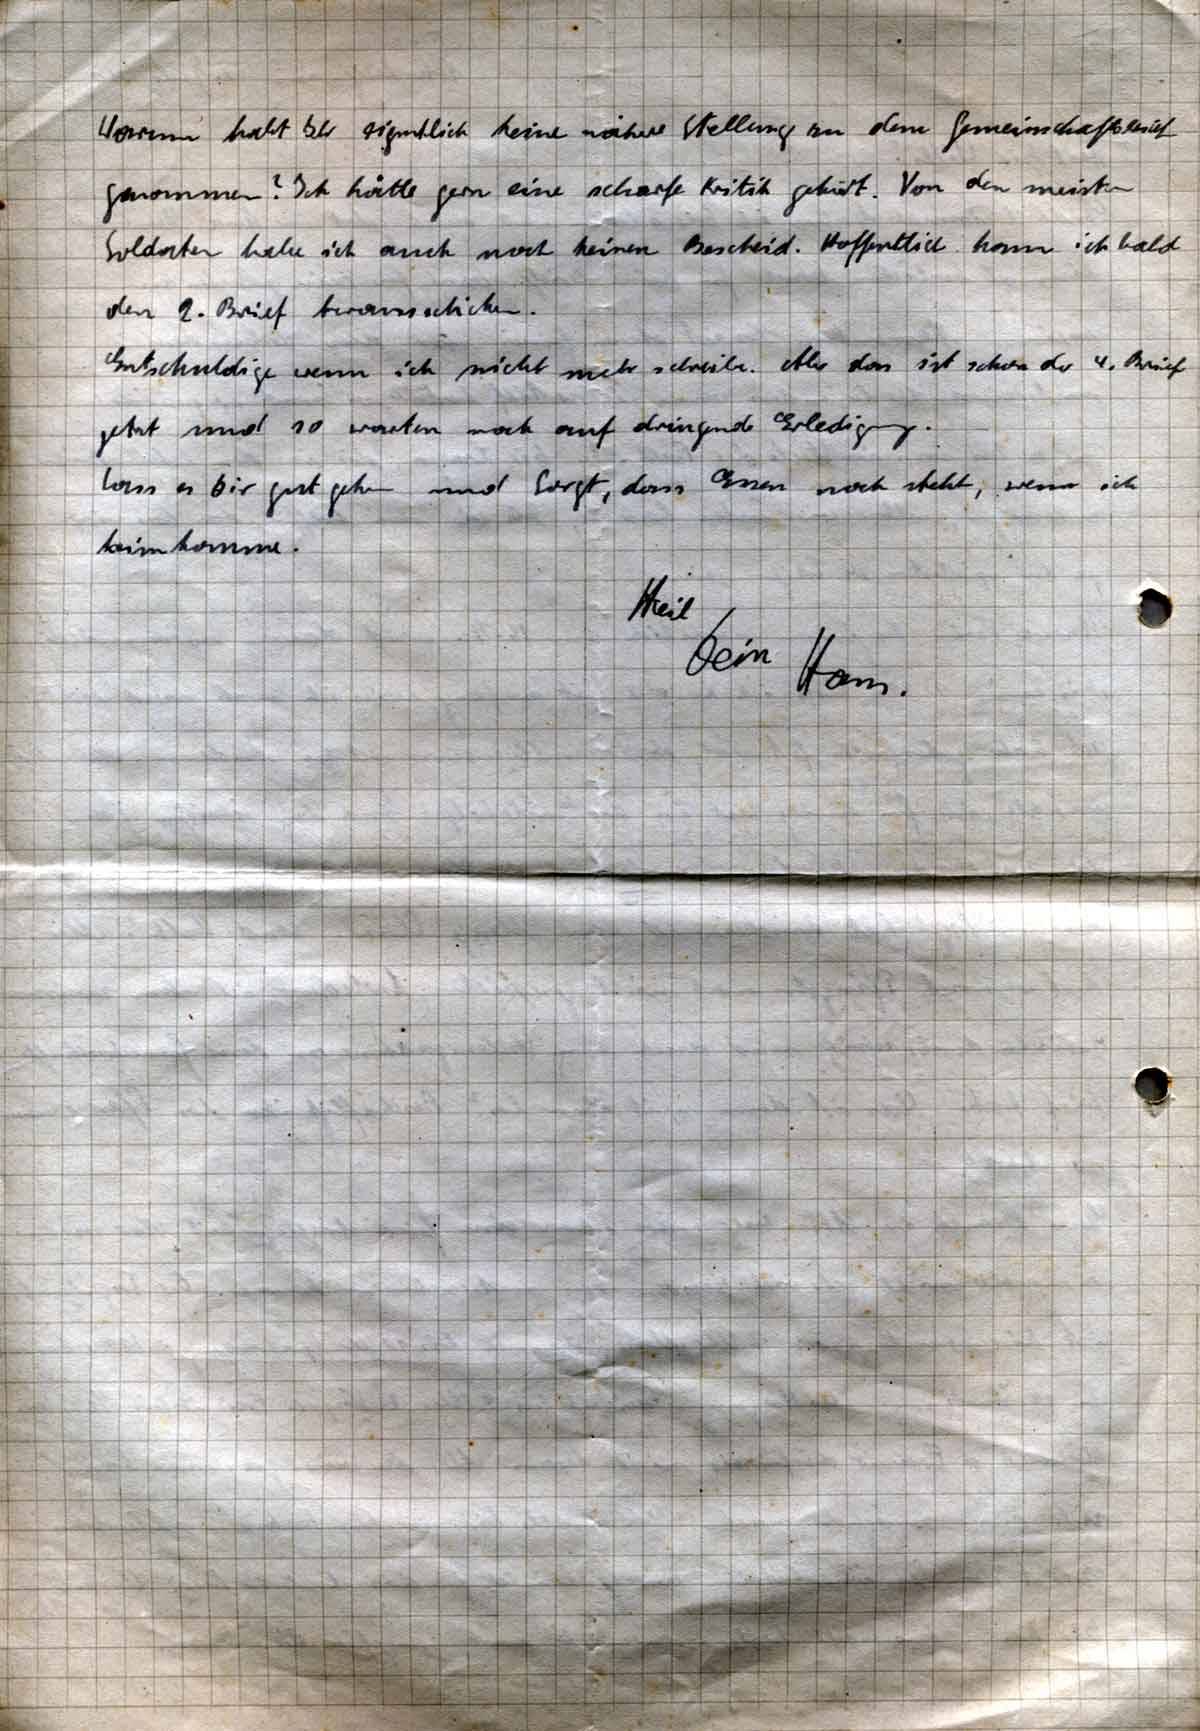 Warum habt Ihr eigentlich keine nähere Stellung zu dem Gemeinschaftsbrief
genommen? Ich hätte gern eine scharfe Kritik gehört. Von den meisten
Soldaten habe ich auch noch keinen Bescheid. Hoffentlich kann ich bald
den 2. Brief herausschicken.
Entschuldige wenn ich nicht mehr schreibe. Aber das ist schon der 4. Brief
jetzt und 10 warten noch auf dringende Erledigung.
Lass es Dir gut gehen und sorgt, dass Essen noch steht, wenn ich
heimkomme.
Heil
Dein Hans.